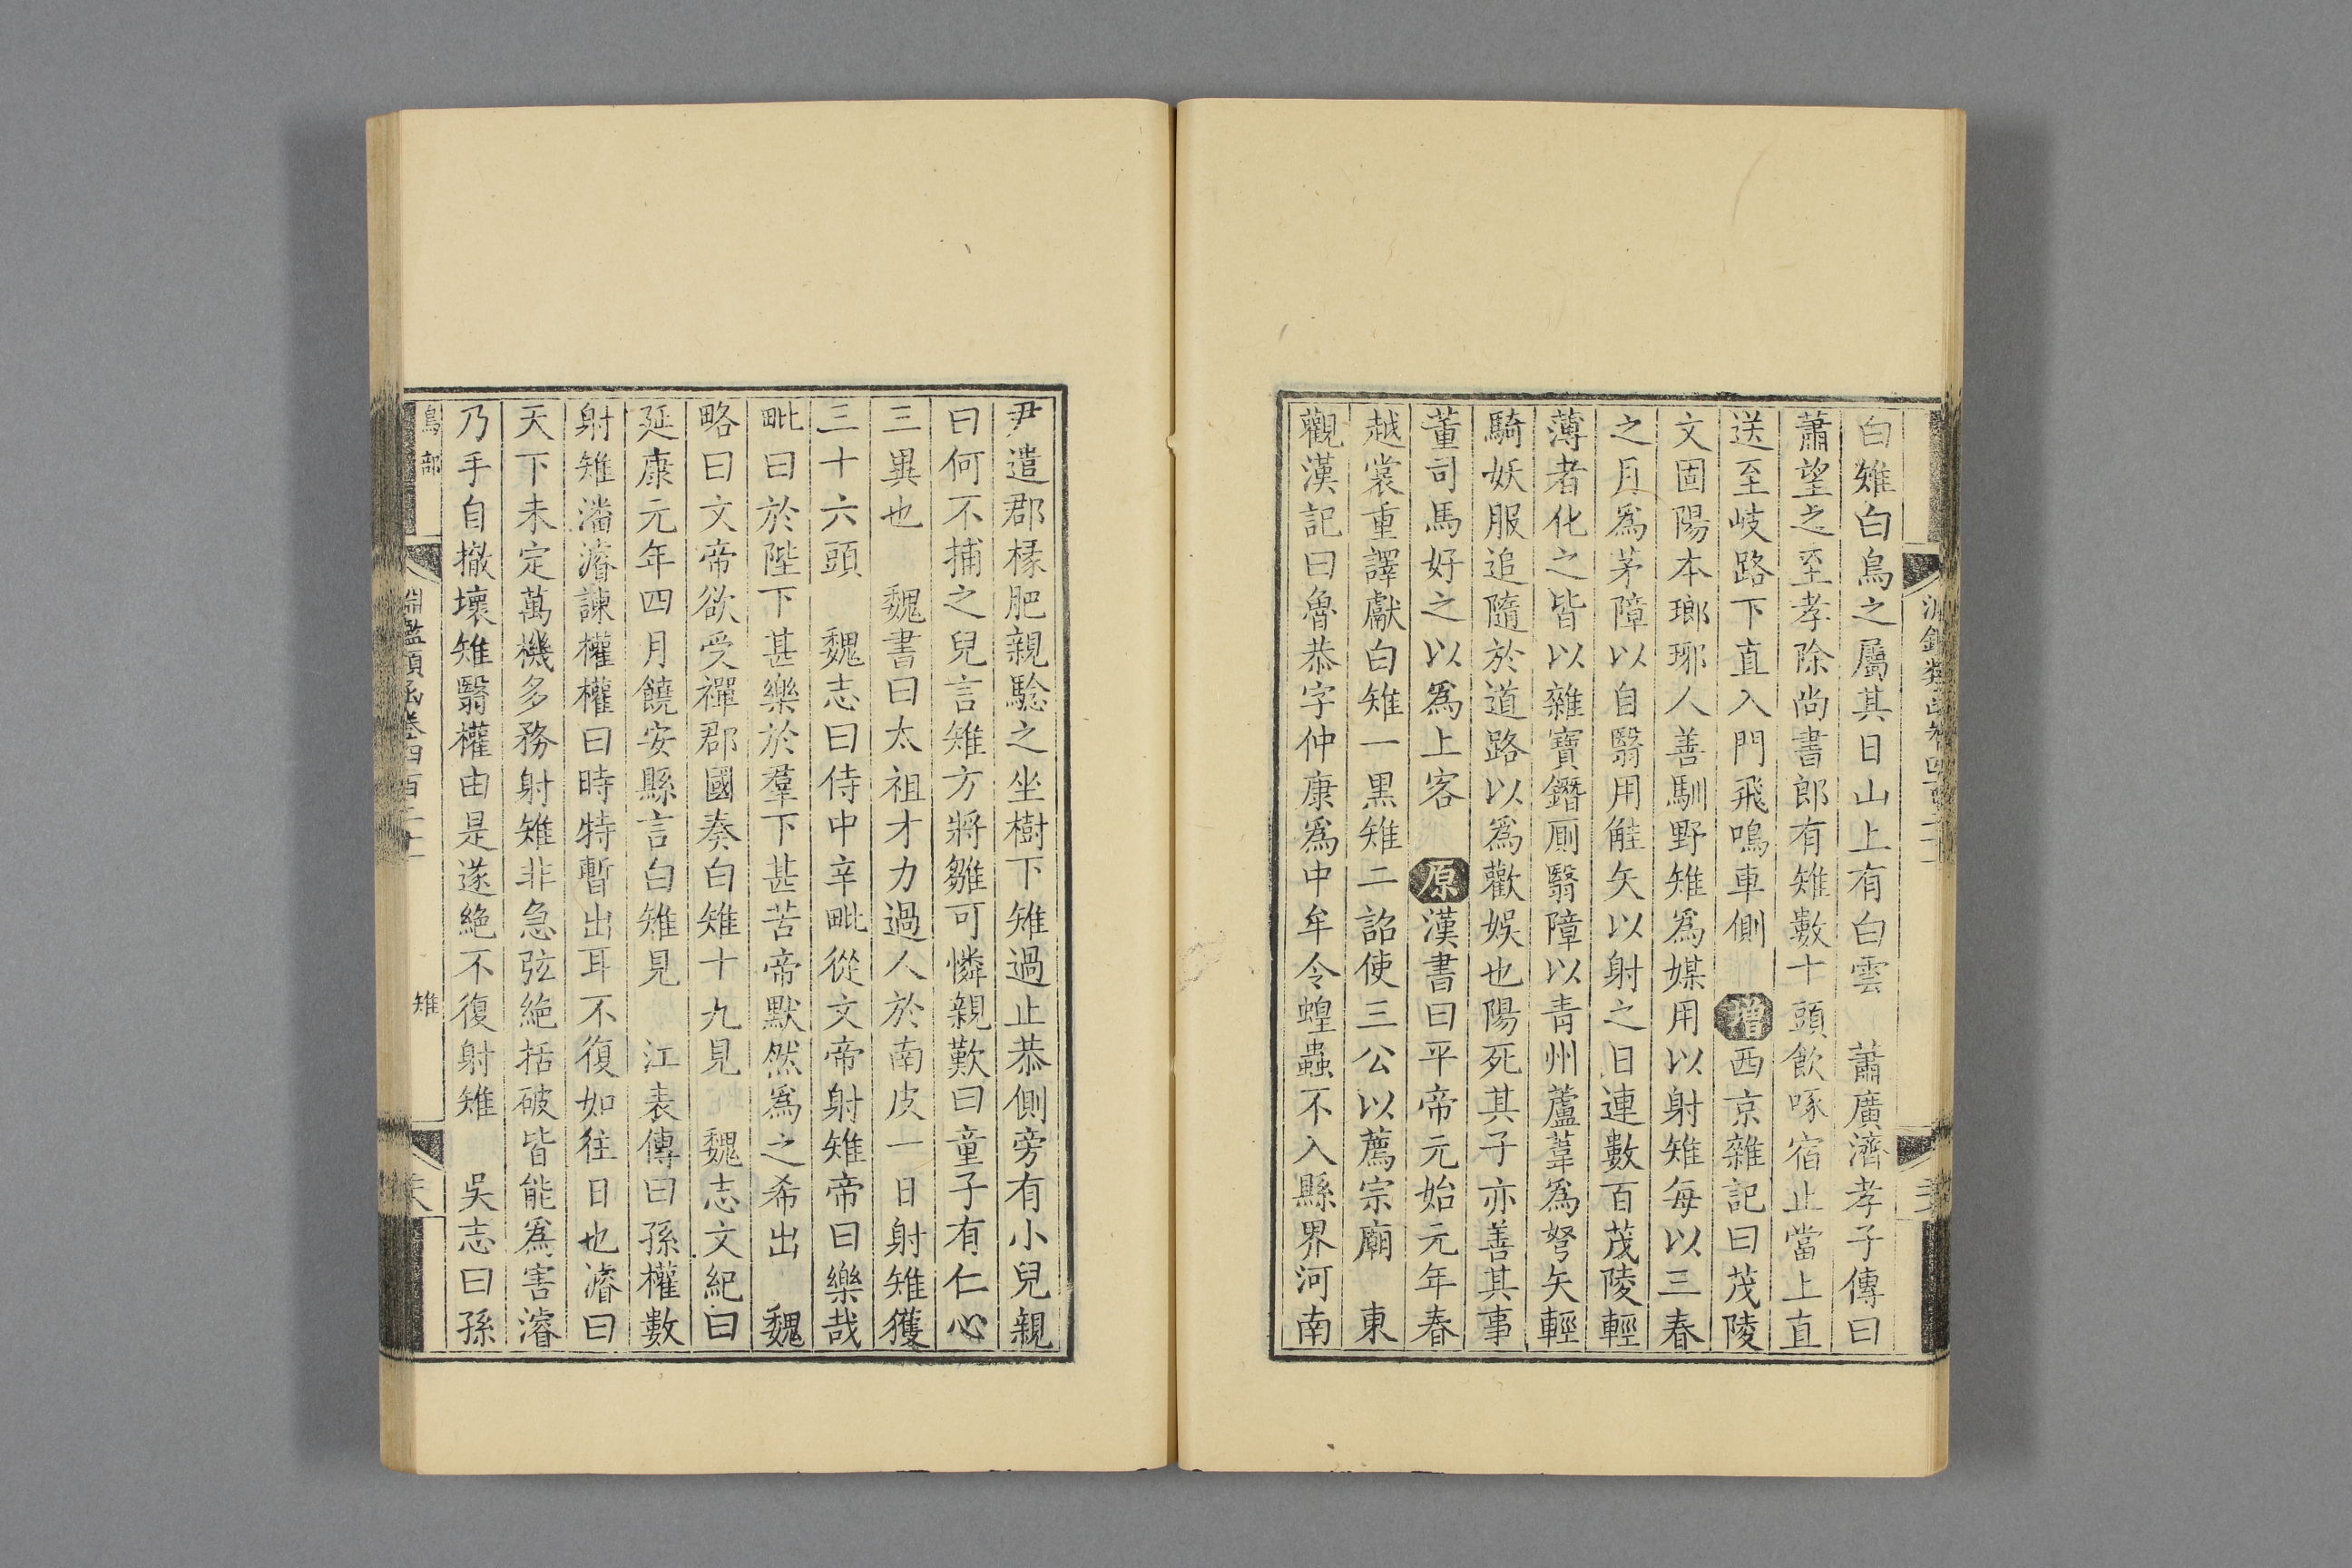 白雉白鳥之屬其日山上有白雲　蕭廣濟孝子傳曰
蕭望之至孝除尚書郎有雉數十頭飲啄宿止當上直
送至岐路下直入門飛鳴車側　增西京雜記曰茂陵
文固陽本瑯琊人善馴野雉爲媒用以射雉每以三春
之月爲茅障以自翳用觟矢以射之日連數百茂陵輕
薄者化之皆以雜寶錯廁翳障以青州蘆葦爲弩矢輕
騎妖服追隨於道路以爲歡娛也陽死其子亦善其事
董司馬好之以爲上客　原漢書曰平帝元始元年春
越裳重譯獻白雉一黑雉二詔使三公以薦宗廟　東
觀漢記曰魯恭字仲康爲中牟令蝗蟲不入縣界河南
尹遣郡椽肥親驗之坐樹下雉過止恭側旁有小兒親
曰何不捕之兒言雉方將雛可憐親歎曰童子有仁心
三異也　魏書曰太祖才力過人於南皮一日射雉獲
三十六頭　魏志曰侍中辛毗從文帝射雉帝曰樂哉
毗曰於陛下甚樂於羣下甚苦帝默然爲之希出　魏
略曰文帝欲受禪郡國奏白雉十九見　魏志文紀曰
延康元年四月饒安縣言白雉見　江表傳曰孫權數
射雉潘濬諫權權曰時特暫出耳不復如往日也濬曰
天下未定萬機多務射雉非急弦絶括破皆能爲害濬
乃手自撤壞雉翳權由是遂絶不復射雉　吳志曰孫
鳥部　淵鑑類函卷四百二十　雉